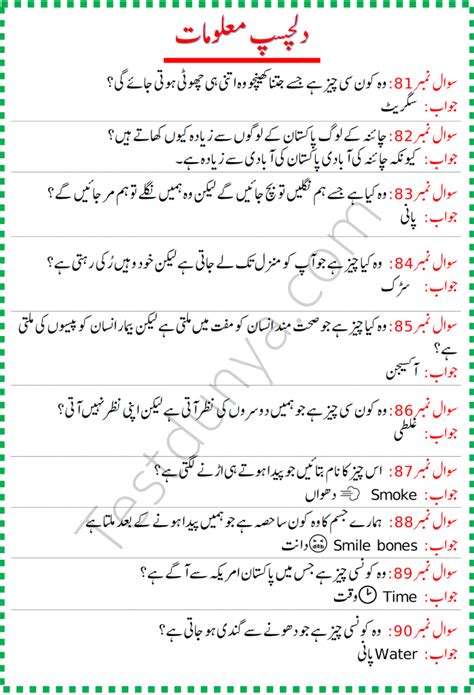 دلچسپ معلومات
سوال نمبر 81: وہ کون سی چیز ہے جسے جتنا کھینچو وہ اتنی ہی چھوٹی ہوتی جائے گی؟
جواب: سگریٹ
سوال نمبر 82: چائنہ کے لوگ پاکستان کے لوگوں سے زیادہ کیوں کھاتے ہیں؟
جواب: کیونکہ چائنہ کی آبادی پاکستان کی آبادی سے زیادہ ہے۔
سوال نمبر 83: وہ کیا ہے جسے ہم نگلیں تو بچ جائیں گے لیکن وہ ہمیں نگلے تو ہم مر جائیں گے؟
جواب: پانی
سوال نمبر 84: وہ کیا چیز ہے جو آپ کو منزل تک لے جاتی ہے لیکن خود وہیں رُکی رہتی ہے؟
جواب: سڑک
سوال نمبر 85: وہ کیا چیز ہے جو صحت مند انسان کو مفت میں ملتی ہے لیکن بیمار انسان کو پیسوں کی ملتی
ہے؟
جواب: آکسیجن
سوال نمبر 86: وہ کون سی چیز ہے جو ہمیں دوسروں کی نظر آتی ہے لیکن اپنی نظر نہیں آتی؟
جواب: غلطی
سوال نمبر 87: اس چیز کا نام بتائیں جو پیدا ہوتے ہی اڑنے لگتی ہے؟
جواب: Smoke 💨 دھواں
سوال نمبر 88: ہمارے جسم کا وہ کون سا حصہ ہے جو ہمیں پیدا ہونے کے بعد ملتا ہے
جواب: Smile bones😬 دانت
سوال نمبر 89: وہ کونسی چیز ہے جس میں پاکستان امریکہ سے آگے ہے؟
جواب: Time 🕑وقت
سوال نمبر 90: وہ کونسی چیز ہے جو دھونے سے گندی ہو جاتی ہے؟
جواب: Waterپانی
Testdunya.com